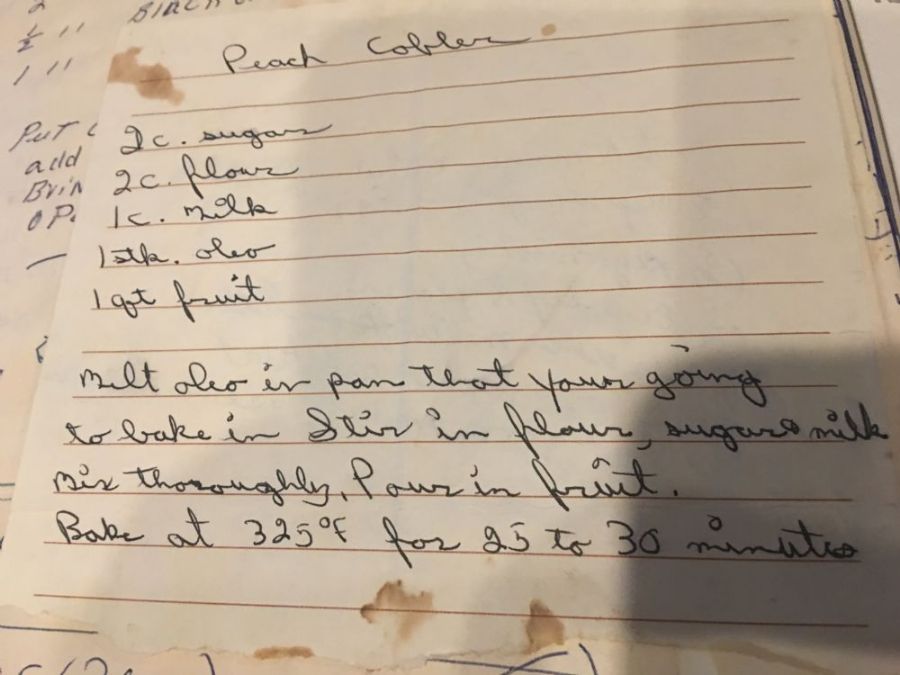 2
½ "
1 "
Put
add
Peach Cobler
2c. sugar
2c. flour
1c. milk
1 stk. oleo
1 qt fruit
Melt oleo in pan that your going
to bake in Stir in flour, sugar & milk
Mix thoroughly. Pour in fruit.
Bake at 325°F for 25 to 30 minutes